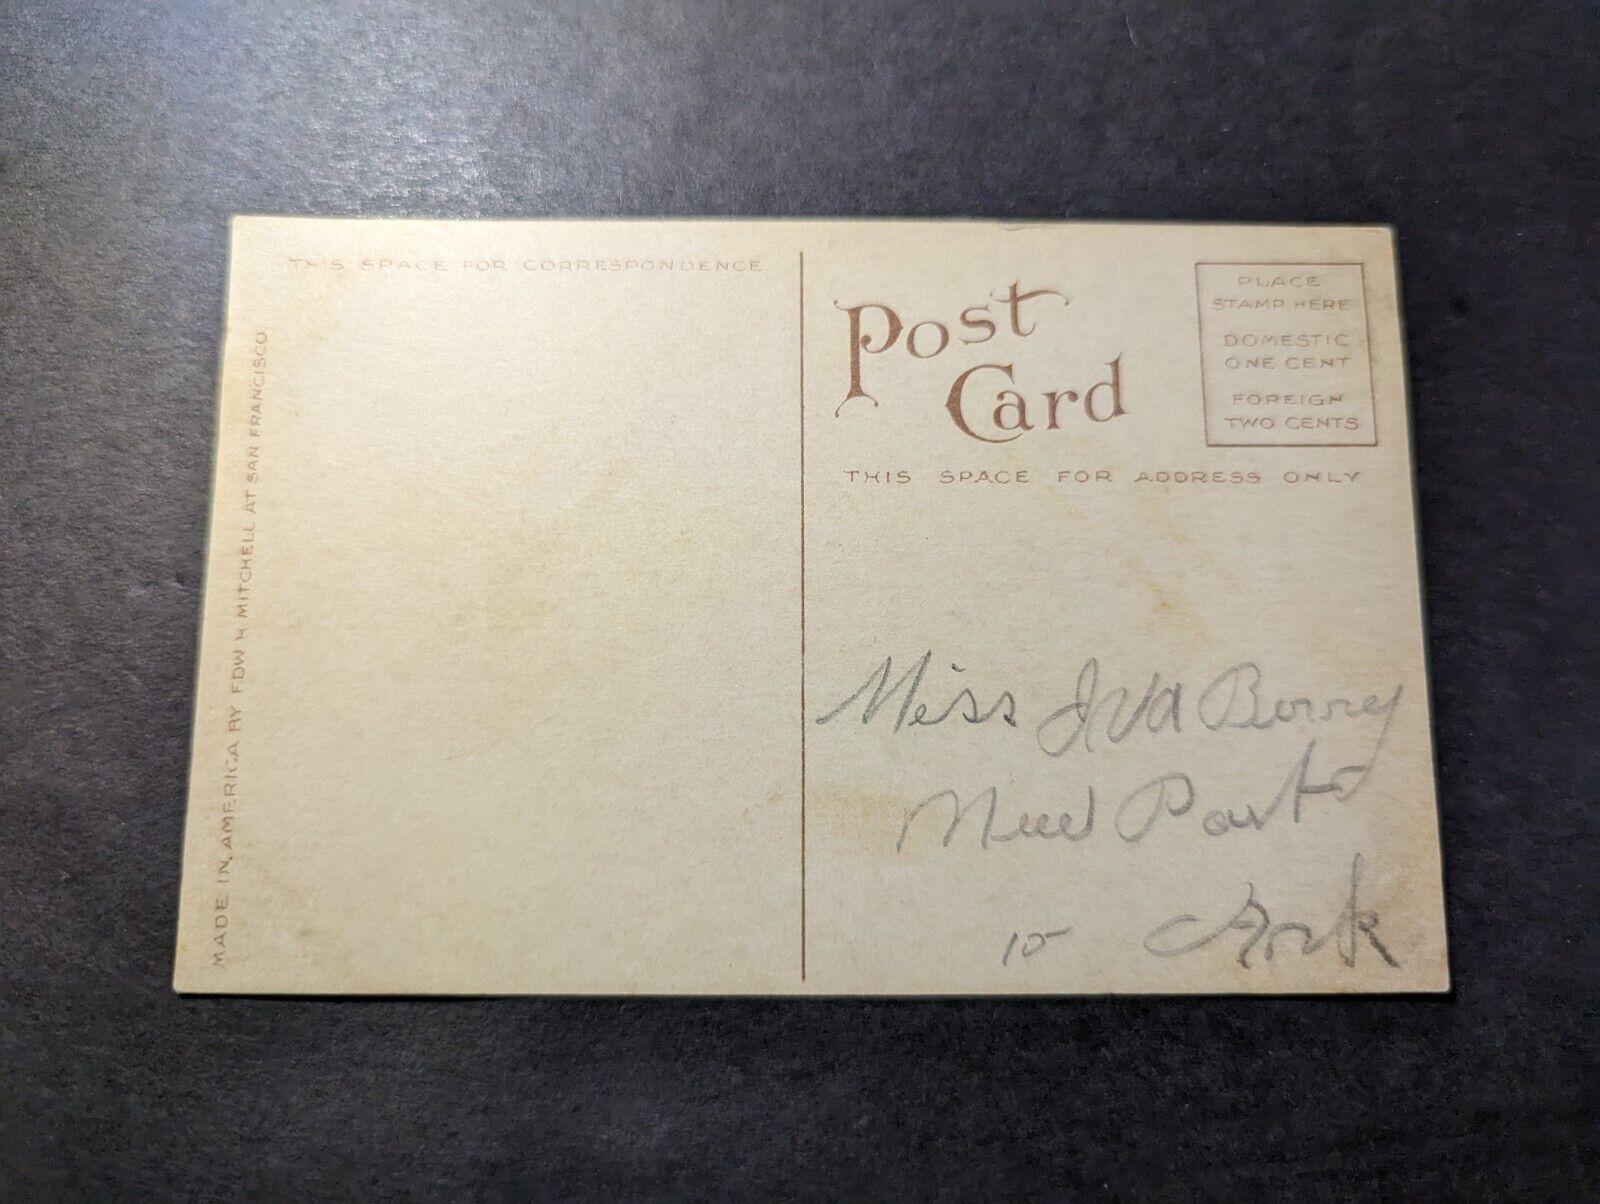 THIS SPACE FOR CORRESPONDENCE
MADE IN AMERICA BY EDW H MITCHELL AT SAN FRANCISCO
Post
Card
PLACE
STAMP HERE
DOMESTIC
ONE CENT
FOREIGN
TWO CENTS
THIS SPACE FOR ADDRESS ONLY
Miss Iva
Port
15 Ark